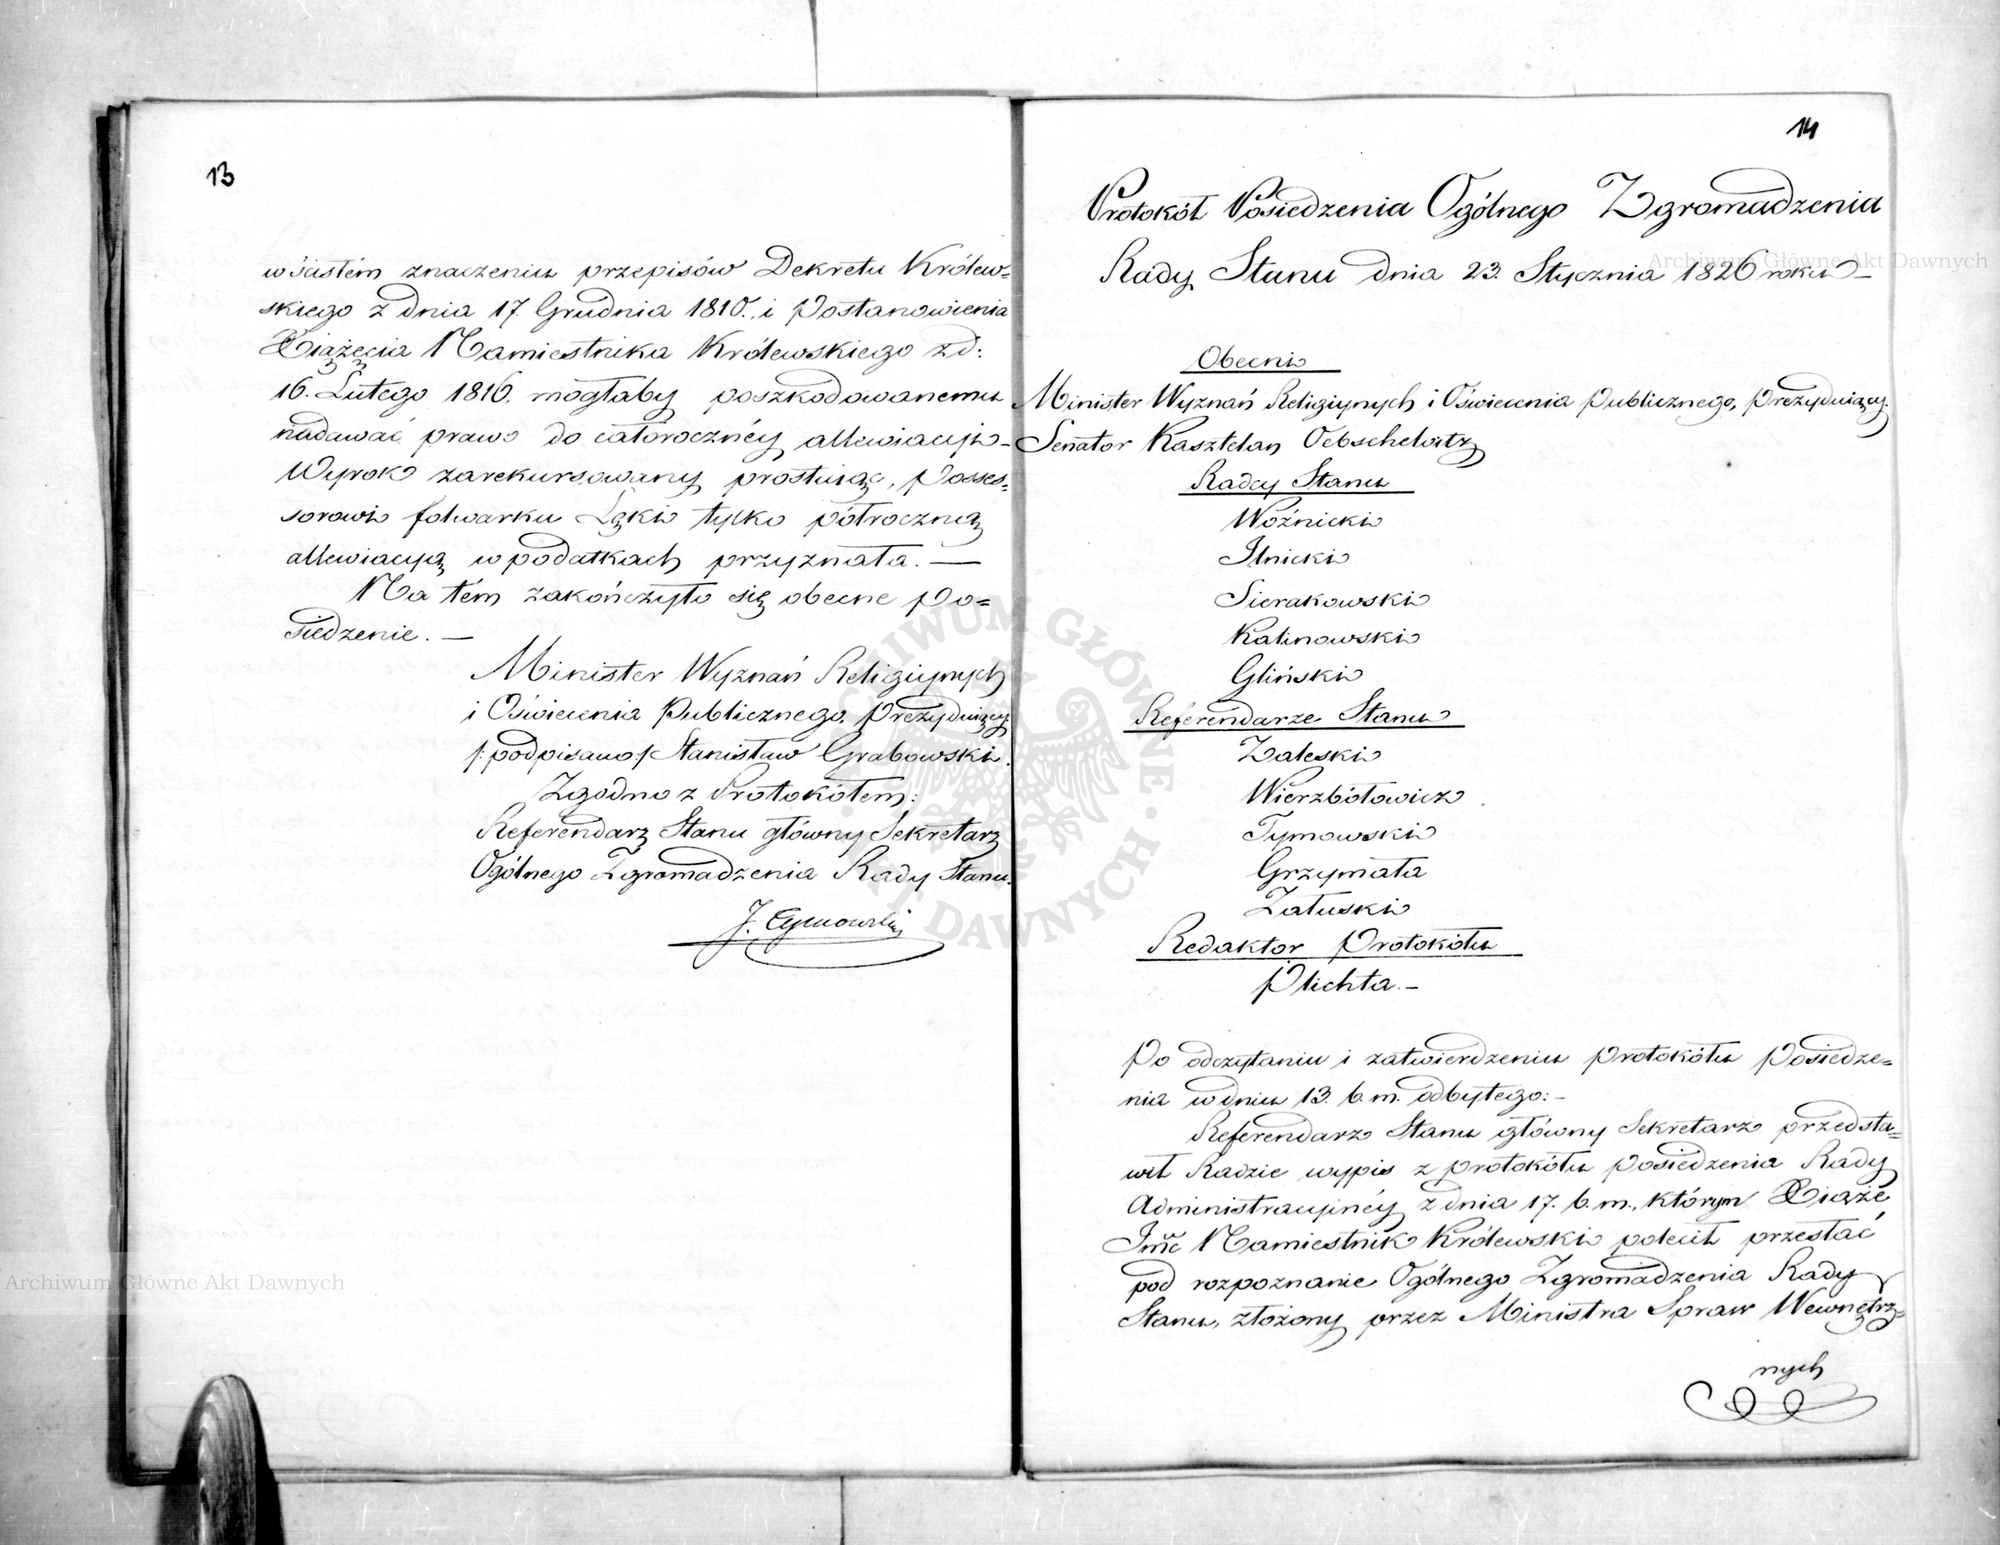 13
w ścisłém znaczeniu przepisów Dekretu Królew=
skiego z dnia 17. Grudnia 1810. i Postanowienia
Xiążęcia Namiestnika Królewskiego z d:
16. Lutego 1816. mogłaby poszkodowanemu
nadawać prawo do całorocznéy allewiacyi –
Wyrok zarekursowany prostuiąc, Posses=
sorowi folwarku Łęki tylko półroczną
allewiacyą w podatkach przyznała. —
Na tém zakończyło się obecne Po=
siedzenie. —
Minister Wyznań Religiynych
i Oświecenia Publicznego, Prezyduiący
/:podpisano:/ Stanisław Grabowski.
Zgodno z Protokółem:
Referendarz Stanu główny Sekretarz
Ogólnego Zgromadzenia Rady Stanu.
J. Tymowski
14
Protokół Posiedzenia Ogólnego Zgromadzenia
Rady Stanu dnia 23. Stycznia 1826 roku –
Obecni
Minister Wyznań Religiynych i Oświecenia Publicznego, Prezyduiący.
Senator Kasztelan Oebschelwitz
Radcy Stanu
Woźnicki
Ilnicki
Sierakowski
Kalinowski
Gliński
Referendarze Stanu
Zaleski
Wierzbółowicz
Tymowski
Grzymała
Załuski
Redaktor Protokółu
Plichta. –
Po odczytaniu i zatwierdzeniu protokółu Posiedze=
nia w dniu 13. b. m. odbytego: –
Referendarz Stanu główny Sekretarz przedsta=
wił Radzie wypis z protokółu posiedzenia Rady
Administracyinéy z dnia 17. b. m., którym Xiąże
Jmć Namiestnik Królewski polecił przesłać
pod rozpoznanie Ogólnego Zgromadzenia Rady
Stanu, złożony przez Ministra Spraw Wewnętrz=
nych
Archiwum Główne Akt Dawnych
Archiwum Główne Akt Dawnych
ARCHIWUM GŁÓWNE AKT DAWNYCH